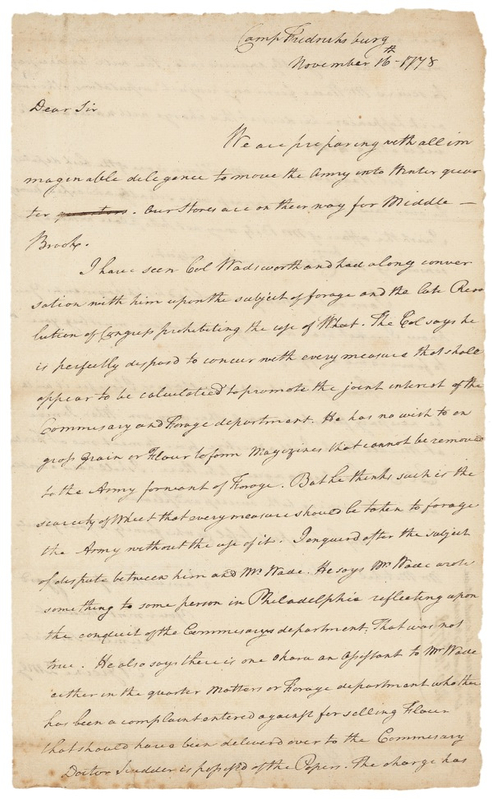 Camp Fredricksburg
November 16th - 1778
Dear Sir
We are preparing with all im
maginable delegence to move the Army into Winter quar
ter quarters. Our Stores are on their way for Middle -
Brook.
I have seen Col Wadsworth and had a long conver
sation with him upon the subject of forage and the late Reso
lution of Congress prohibiting the use of Wheat. The Col says he
is perfectly disposd to concur with every measure that shall
appear to be calculatied to promote the joint interest of the
Commisary and Forage department. He has no wish to en
gross Grain or Flour to form Magizines that cannot be removed
to the Army for want of Forage. But he thinks such is the
scarcity of Wheet that every measure should be taken to forage
the Army without the use of it. I enquird after the subject
of dispute between him and Mr Wade. He says Mr Wade wrote
something to some person in Philadelphia reflecting upon
the conduct of the Commisarys department. That was not
true. He also says there is one Ohara an Assistant to Mr Wade
either in the quarter Masters or Forage department who ther
has been a complaint entered against for selling Flour
that should have been deliverd over to the Commisary
Doctor Scudder is possessd of the Papers. The charge has